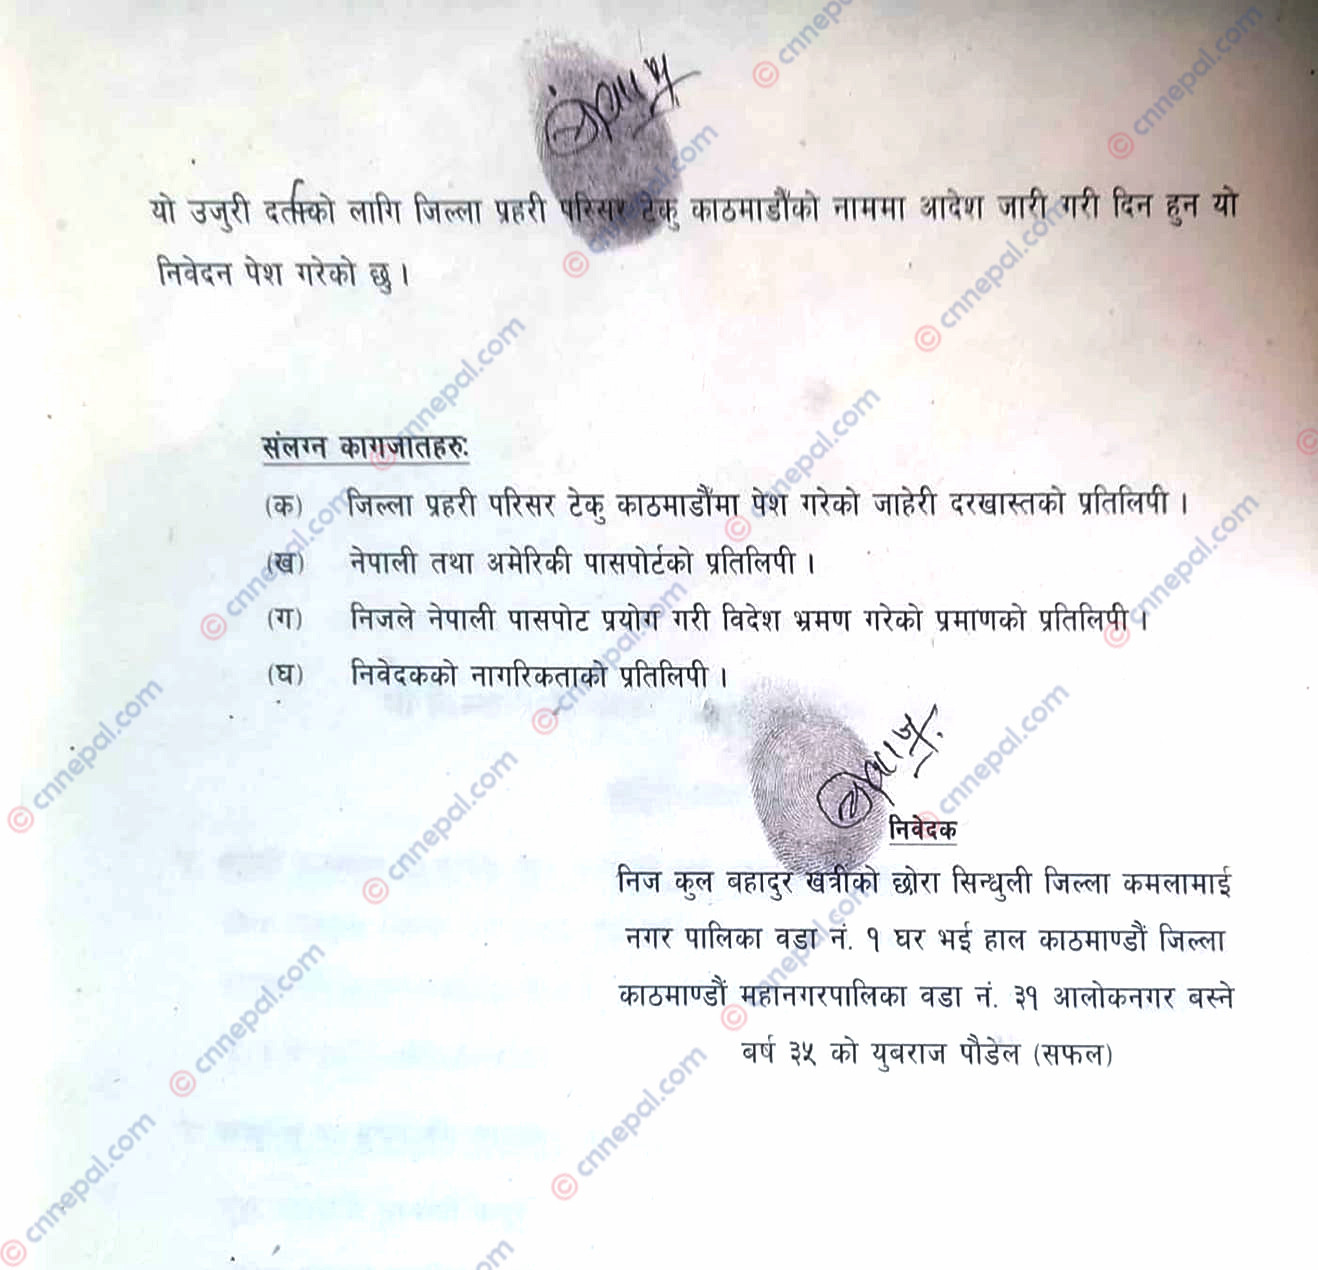 यो उजुरी दर्ताको लागि जिल्ला प्रहरी परिसर टेकु काठमाडौंको नाममा आदेश जारी गरी दिन हुन यो
निवेदन पेश गरेको छु ।
संलग्न कागजातहरु:
(क) जिल्ला प्रहरी परिसर टेकु काठमाडौंमा पेश गरेको जाहेरी दरखास्तको प्रतिलिपी ।
(ख) नेपाली तथा अमेरिकी पासपोर्टको प्रतिलिपी ।
(ग) निजले नेपाली पासपोट प्रयोग गरी विदेश भ्रमण गरेको प्रमाणको प्रतिलिपी ।
(घ) निवेदकको नागरिकताको प्रतिलिपी ।
निवेदक
निज कुल बहादुर खत्रीको छोरा सिन्धुली जिल्ला कमलामाई
नगर पालिका वडा नं. १ घर भई हाल काठमाण्डौं जिल्ला
काठमाण्डौं महानगरपालिका वडा नं. ३१ आलोकनगर बस्ने
बर्ष ३५ को युबराज पौडेल (सफल)
© cnnepal.com